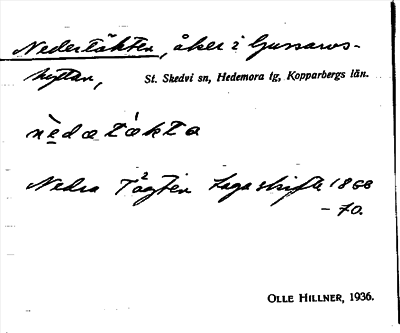 Nedertäkten, åker i Gussarvs-
hyttan, St. Skedvi sn, Hedemora tg, Kopparbergs län.
nèdœtákta
Nedra Tägten Laga skifte 1868
-70.
OLLE HILLNER, 1936.